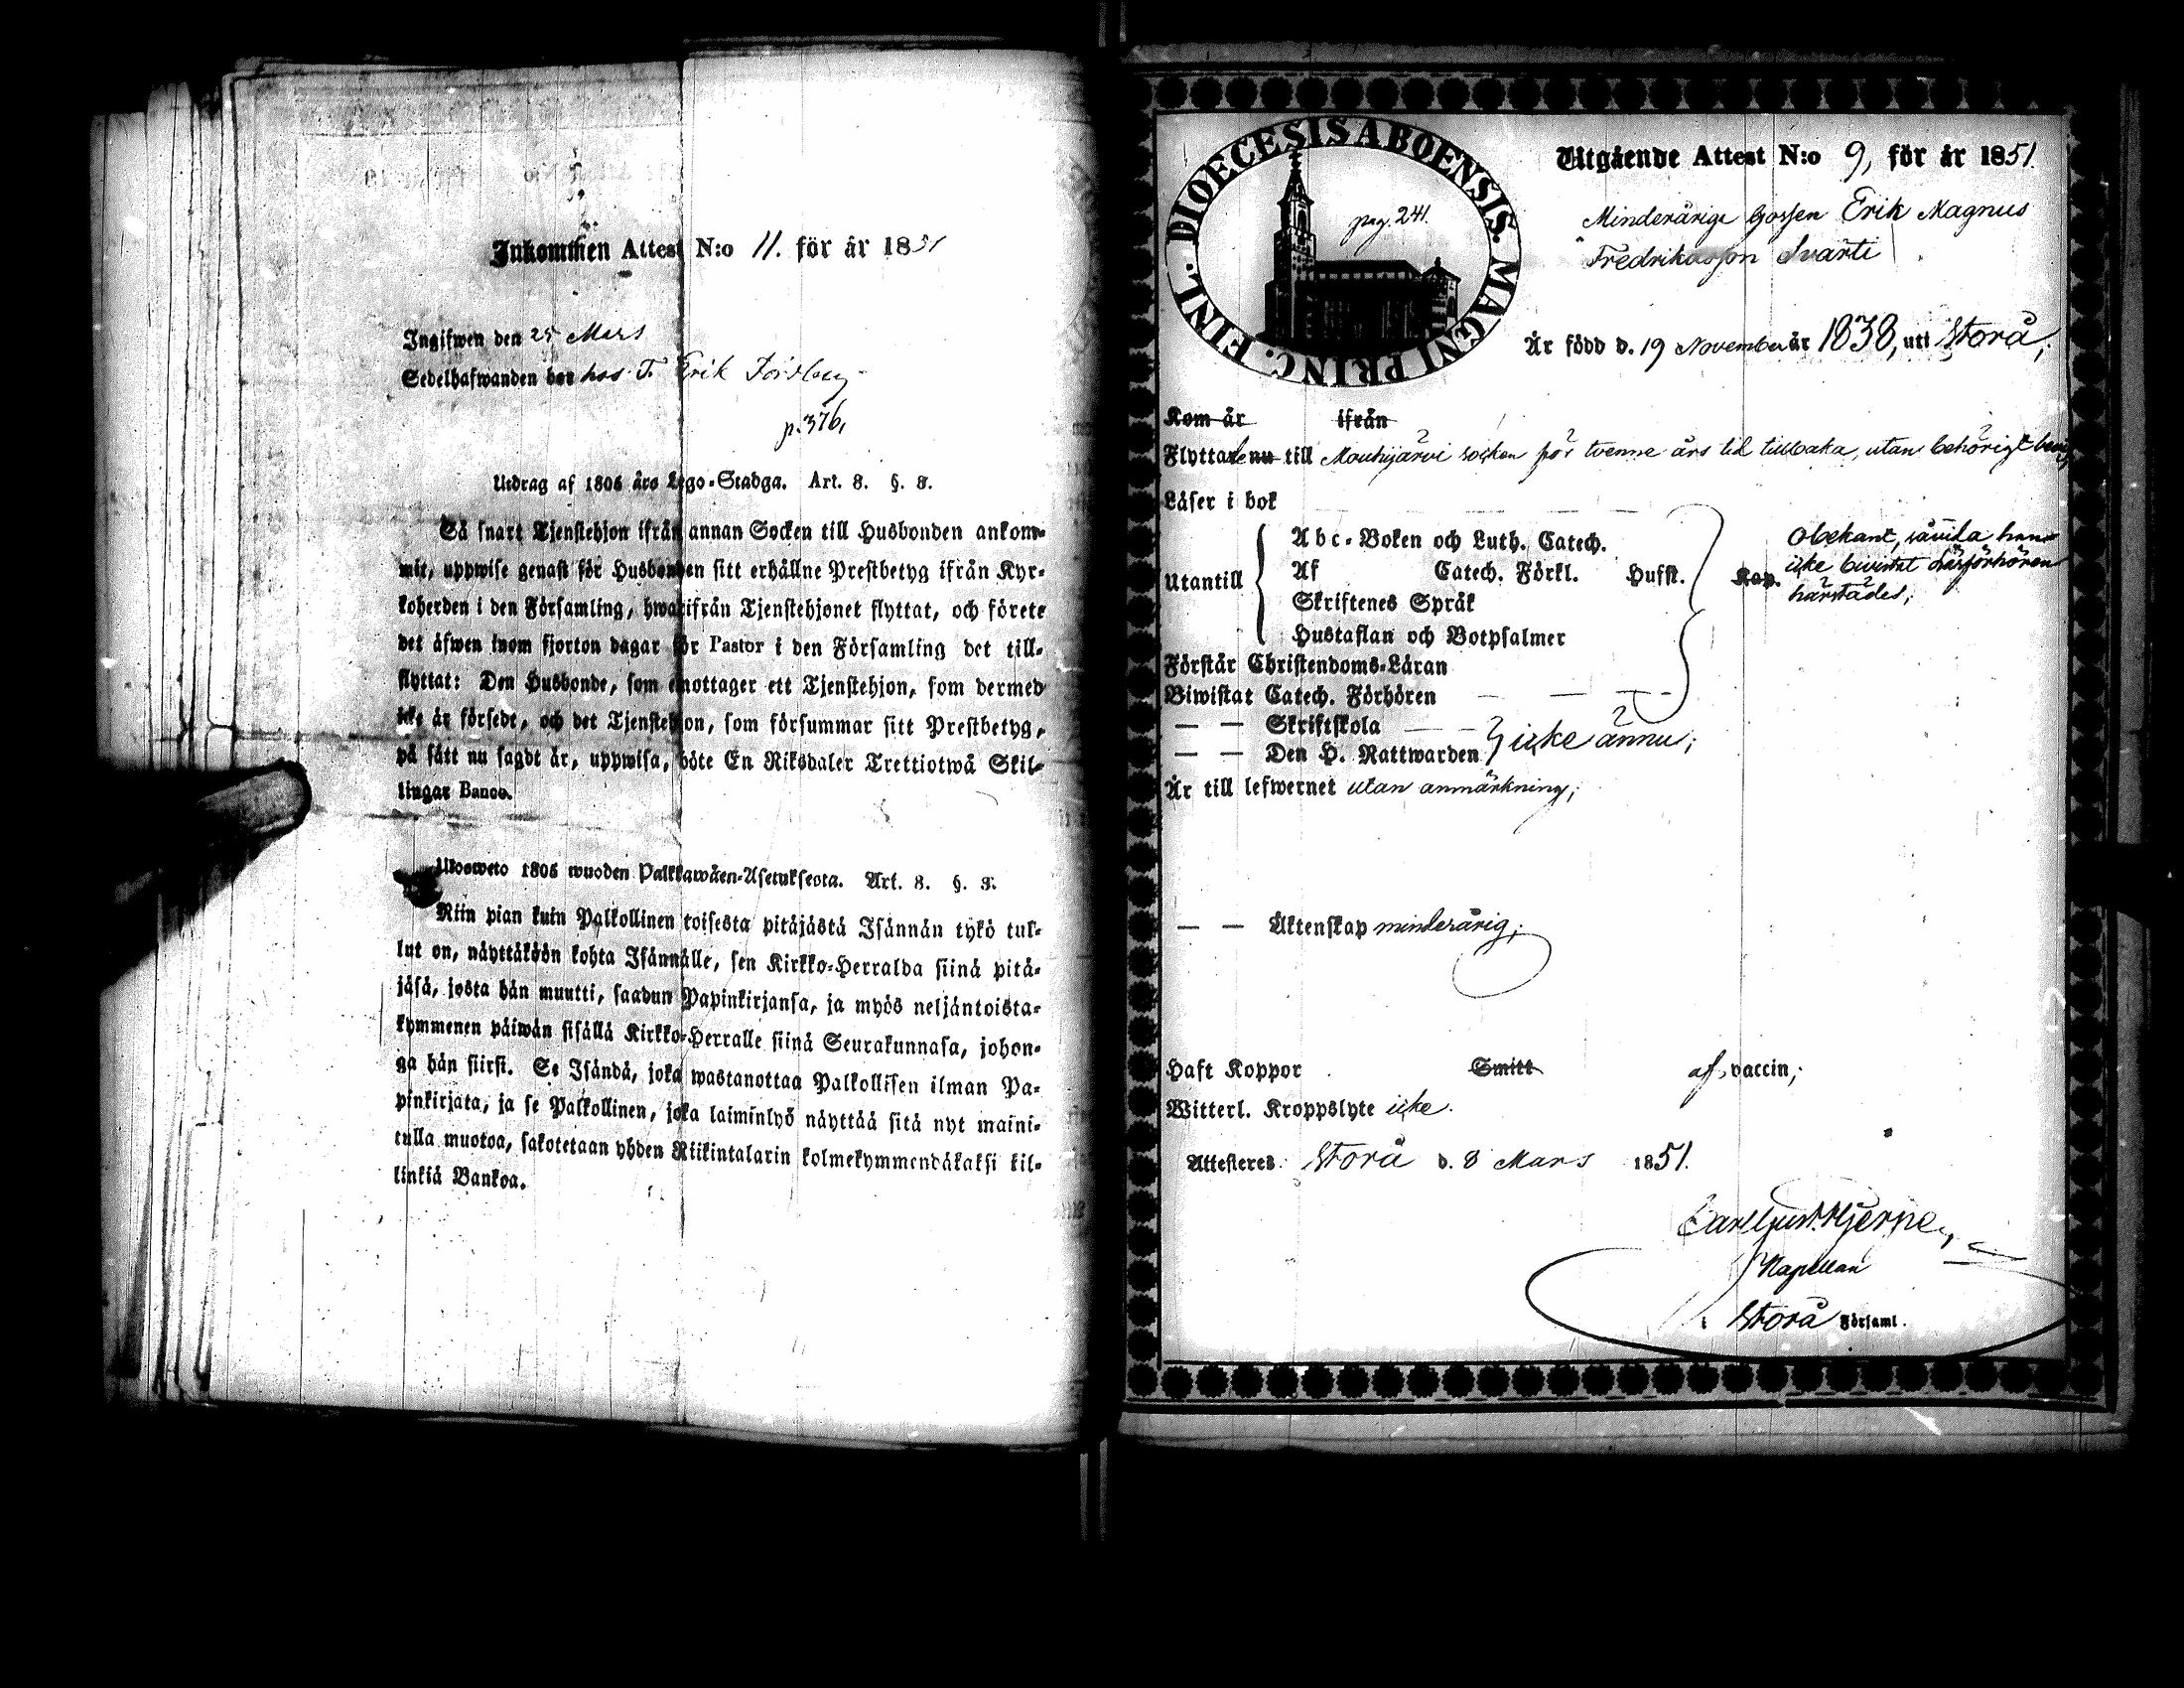 Inkommen Attest N:o 11. för år 1851
Ingifwen den 25 Mars
Sedelhafwanden bor hos T. Erik
p. 376,
Utdrag af 1805 års Lego-Stadga. Art. 8. §. 8.
Så snart Tjenstehjon ifrån annan Socken till Husbonden ankom-
mit, uppwise genast för Husbonden sitt erhållne Prestbetyg ifrån Kyr-
koherden i den Församling, hwarifrån Tjenstehjonet flyttat, och förete
det äfwen inom fjorton dagar för Pastor i den Församling det till-
flyttat: Den Husbonde, som emottager ett Tjenstehjon, som dermed
icke är försedt, och det Tjenstehjon, som försummar sitt Prestbetyg,
på sätt nu sagdt är, uppwisa, böte En Riksdaler Trettiotwå Skil-
lingar Banco.
Ulosweto 1805 wuoden Palkkawäen-Asetuksesta. Art. 8. §. 8.
Niin pian kuin Palkollinen toisesta pitäjästä Isännän tykö tul-
lut on, näyttäköön kohta Isännälle, sen Kirkko-Herralda siinä pitä-
jäsä, josta hän muutti, saadun Papinkirjansa, ja myös neljäntoista-
kymmenen päiwän sisällä Kirkko-Herralle siinä Seurakunnasa, johon-
ga hän siirsi. Se Isändä, joka wastanottaa Palkollisen ilman Pa-
pinkirjata, ja se Palkollinen, joka laiminlyö näyttää sitä nyt maini-
tulla muotoa, sakotetaan yhden Riikintalarin kolmekymmendäkaksi kil-
linkiä Bankoa.
DIOECESIS ABOENSIS. MAGNI PRINC. FINL.
pag. 241.
Utgående Attest N:o 9, för år 1851.
Minderårige Gossen Erik Magnus
Fredriksson Svarti
Är född d. 19 November år 1838, uti Storå,
Kom år ifrån
Flyttade nu till Mouhijärvi socken för tvenne års tid tillbaka, utan behörigt
Läser i bok
Utantill
Abc-Boken och Luth. Catech.
Af Catech. Förkl. Husst. Kap.
Skriftenes Språk
Hustaflan och Botpsalmer
Obekant, såvida han
icke bivistat Läsförhören
härstädes;
Förstår Christendoms-Läran
Biwistat Catech. Förhören
— — Skriftskola
— — Den H. Nattwarden icke ännu;
Är till lefwernet utan anmärkning;
— — Äktenskap minderårig;
Haft Koppor Smitt af vaccin;
Witterl. Kroppslyte icke.
Attesteres: Storå d. 8 Mars 1851.
Carl Gust. Hjerpe,
Kapellan
i Storå Församl.